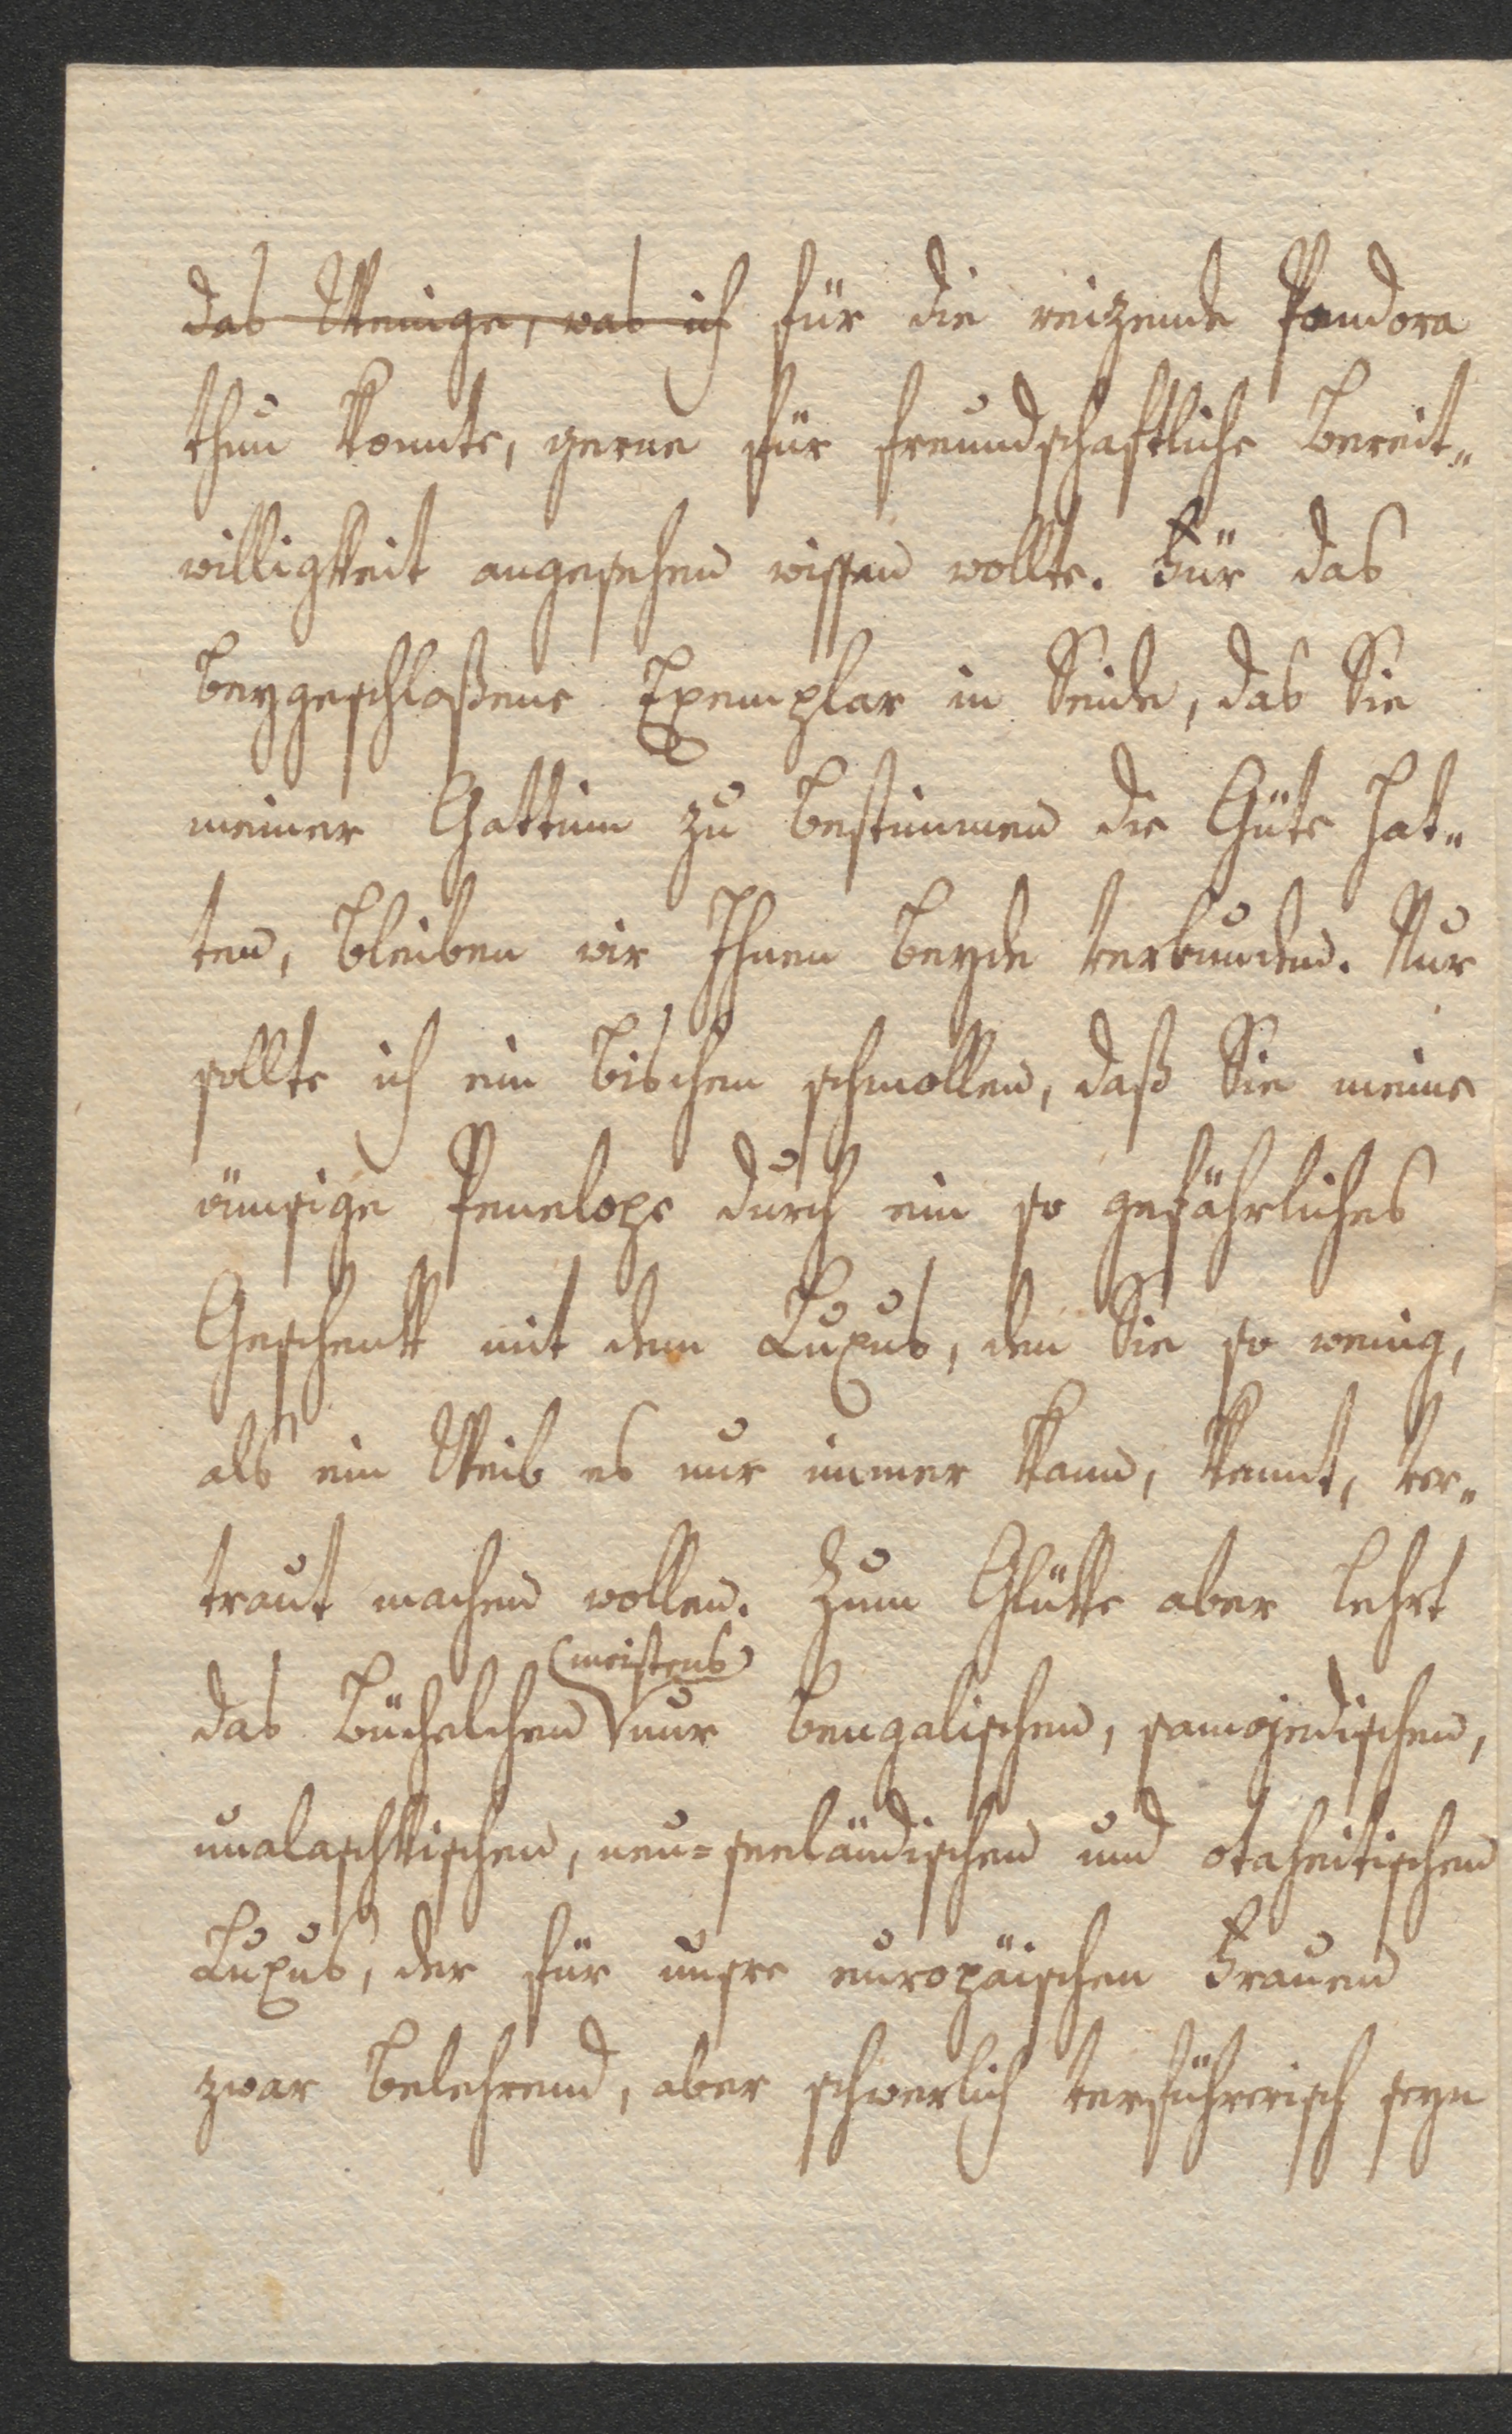 das Wenige, was ich für die reizende Pandora
thun konnte, gerne für freundschaftliche Bereit„
willigkeit angesehen wissen wollte. Für das
beygeschloßene Exemplar in Seide, das Sie
meiner Gattinn zu bestimmen die Güte hat„
ten, bleiben wir Ihnen beyde verbunden. Nur
sollte ich ein bischen schmollen, daß Sie meine
ämsige Penelope durch ein so gefährliches
Geschenk mit dem Luxus, den Sie so wenig,
als ein Weib es nur immer kann, kennt, ver„
traut machen wollen. Zum Glükke aber lehrt
(meistens)
das Büchelchen nur bengalischen, samojedischen,
unalaschkischen, neu=seeländischen und otaheitischen
Luxus, der für unsre europäischen Frauen
zwar belehrend, aber schwerlich verführerisch seyn